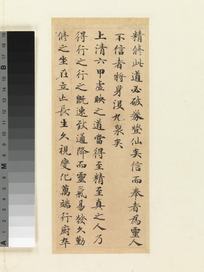 精修此道必破券登仙矣信而奉者為靈人
不信者將身沒九泉矣
上清六甲虛映之道當得至精至真之人乃
得行之行之既速致通降而靈氣易發久勤
修之坐在立亡長生久視變化萬端行廚卒
M
A